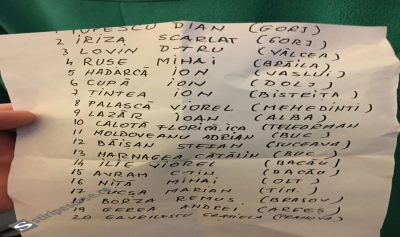 1 POPESCU DIAN (GORJ)
2 IRIZA SCARLAT (GORJ)
3 LOVIN D-TRU (VÂLCEA)
4 RUSE MIHAI (BRĂILA)
5 HADARCĂ ION (VASLUI)
6 CUPĂ ION (DOLJ)
7 TINTEA ION (BISTRITA)
8 PALASCĂ VIOREL (MEHEDINTI)
9 LAZĂR IOAN (ALBA)
10 CALOTĂ FLORICĂ.ICA (TELEORMAN
11 MOLDOVEANU ADRIAN (BUC)
12 BĂISAN STEFAN (SUCEAVA)
13 HARNAGEA CĂTĂLIN (BUC)
14 ILIE VIOREL (BACĂU)
15 AVRAM CTIN. (BACĂU)
16 NITĂ MIHAI (OLT)
17 MARIAN (TIM.)
18 BORZA REMUS (BRASOV)
19 GEREA ANDREI (ARGES)
20 GAVRILESCU GRATIELA (PRAHOVA)